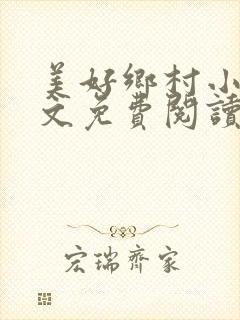 美好鄉村小
文免費閱讀
宏瑞齊家